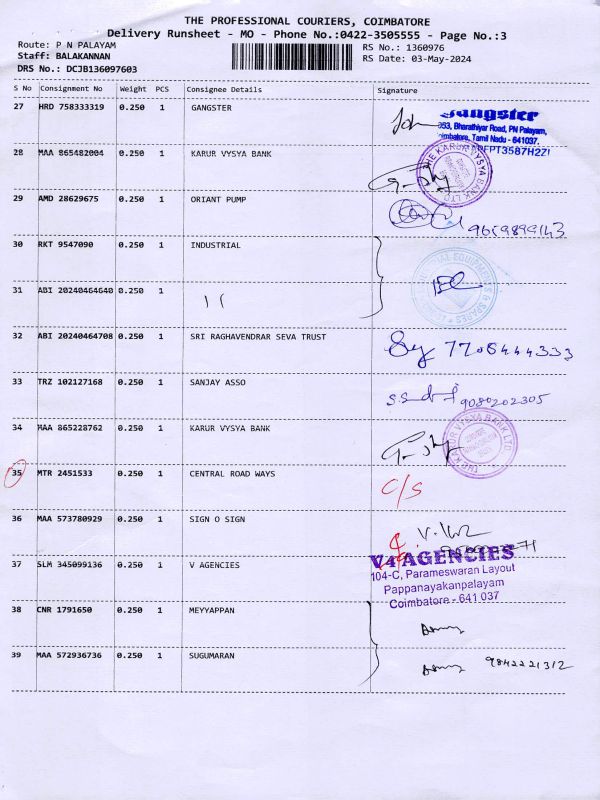 THE PROFESSIONAL COURIERS, COIMBATORE
Delivery Runsheet - MO - Phone No.:0422-3505555 - Page No.:3
Route: P N PALAYAM
RS No.: 1360976
Staff: BALAKANNAN
RS Date: 03-May-2024
DRS No.: DCJB136097603
S No Consignment No Weight PCS Consignee Details Signature
27 HRD 758333319 0.250 1 GANGSTER
Gangster
Bharathiyar Road, PN Palayam,
Tamil Nadu - 641037.
28 MAA 865482004 0.250 1 KARUR VYSYA BANK
THE KARUR VYSYA BANK LTD
29 AMD 28629675 0.250 1 ORIANT PUMP
30 RKT 9547090 0.250 1 INDUSTRIAL
31 ABI 20240464640 0.250 1
32 ABI 20240464708 0.250 1 SRI RAGHAVENDRAR SEVA TRUST
33 TRZ 102127168 0.250 1 SANJAY ASSO
9080202305
34 MAA 865228762 0.250 1 KARUR VYSYA BANK
THE KARUR VYSYA BANK LTD
35 MTR 2451533 0.250 1 CENTRAL ROAD WAYS C/S
36 MAA 573780929 0.250 1 SIGN O SIGN
37 SLM 345099136 0.250 1 V AGENCIES
V4 AGENCIES
104-C, Parameswaran Layout
Pappanayakanpalayam
Coimbatore - 641 037
38 CNR 1791650 0.250 1 MEYYAPPAN
39 MAA 572936736 0.250 1 SUGUMARAN 9842221312